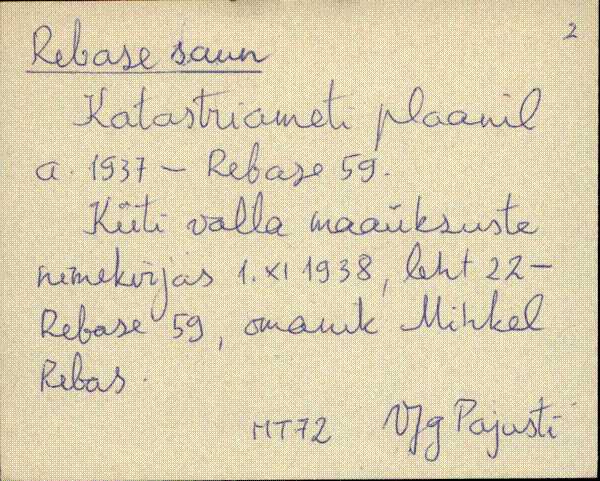 2
Rebase saun
Katastriameti plaanil
a. 1937 – Rebase 59.
Küti valla maaüksuste
nimekirjas 1. XI 1938, leht 22 –
Rebase 59, omanik Mihkel
Rebas.
MT72 VJg Pajusti